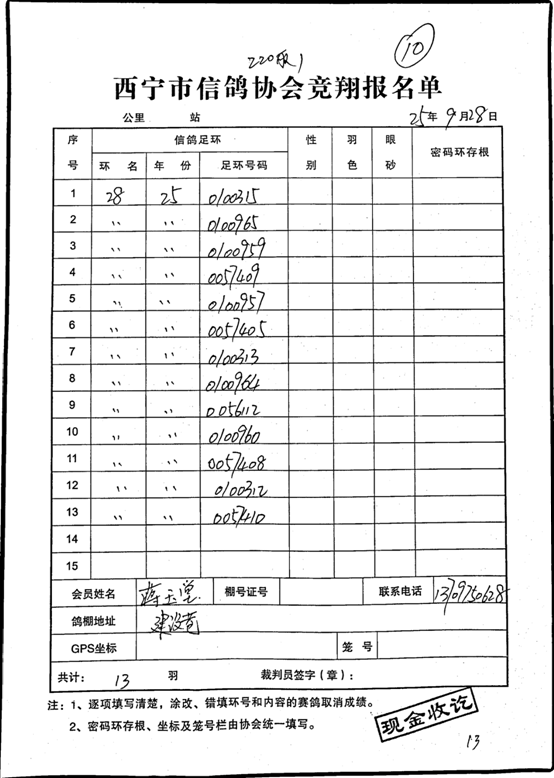 220级1
10
西宁市信鸽协会竞翔报名单
公里 站 25年9月28日
序号 信鸽足环 性别 羽色 眼砂 密码环存根
环名 年份 足环号码
1 28 25 0100315
2 〃 〃 0100965
3 〃 〃 0100959
4 〃 〃 0057409
5 〃 〃 0100957
6 〃 〃 0057405
7 〃 〃 0100313
8 〃 〃 0100964
9 〃 〃 0056112
10 〃 〃 0100960
11 〃 〃 0057408
12 〃 〃 0100312
13 〃 〃 0057410
14
15
会员姓名 蒋玉堂 棚号证号 联系电话 13709750628
鸽棚地址
GPS坐标 笼号
共计: 13 羽 裁判员签字(章):
注:1、逐项填写清楚,涂改、错填环号和内容的赛鸽取消成绩。
2、密码环存根、坐标及笼号栏由协会统一填写。
现金收讫
13